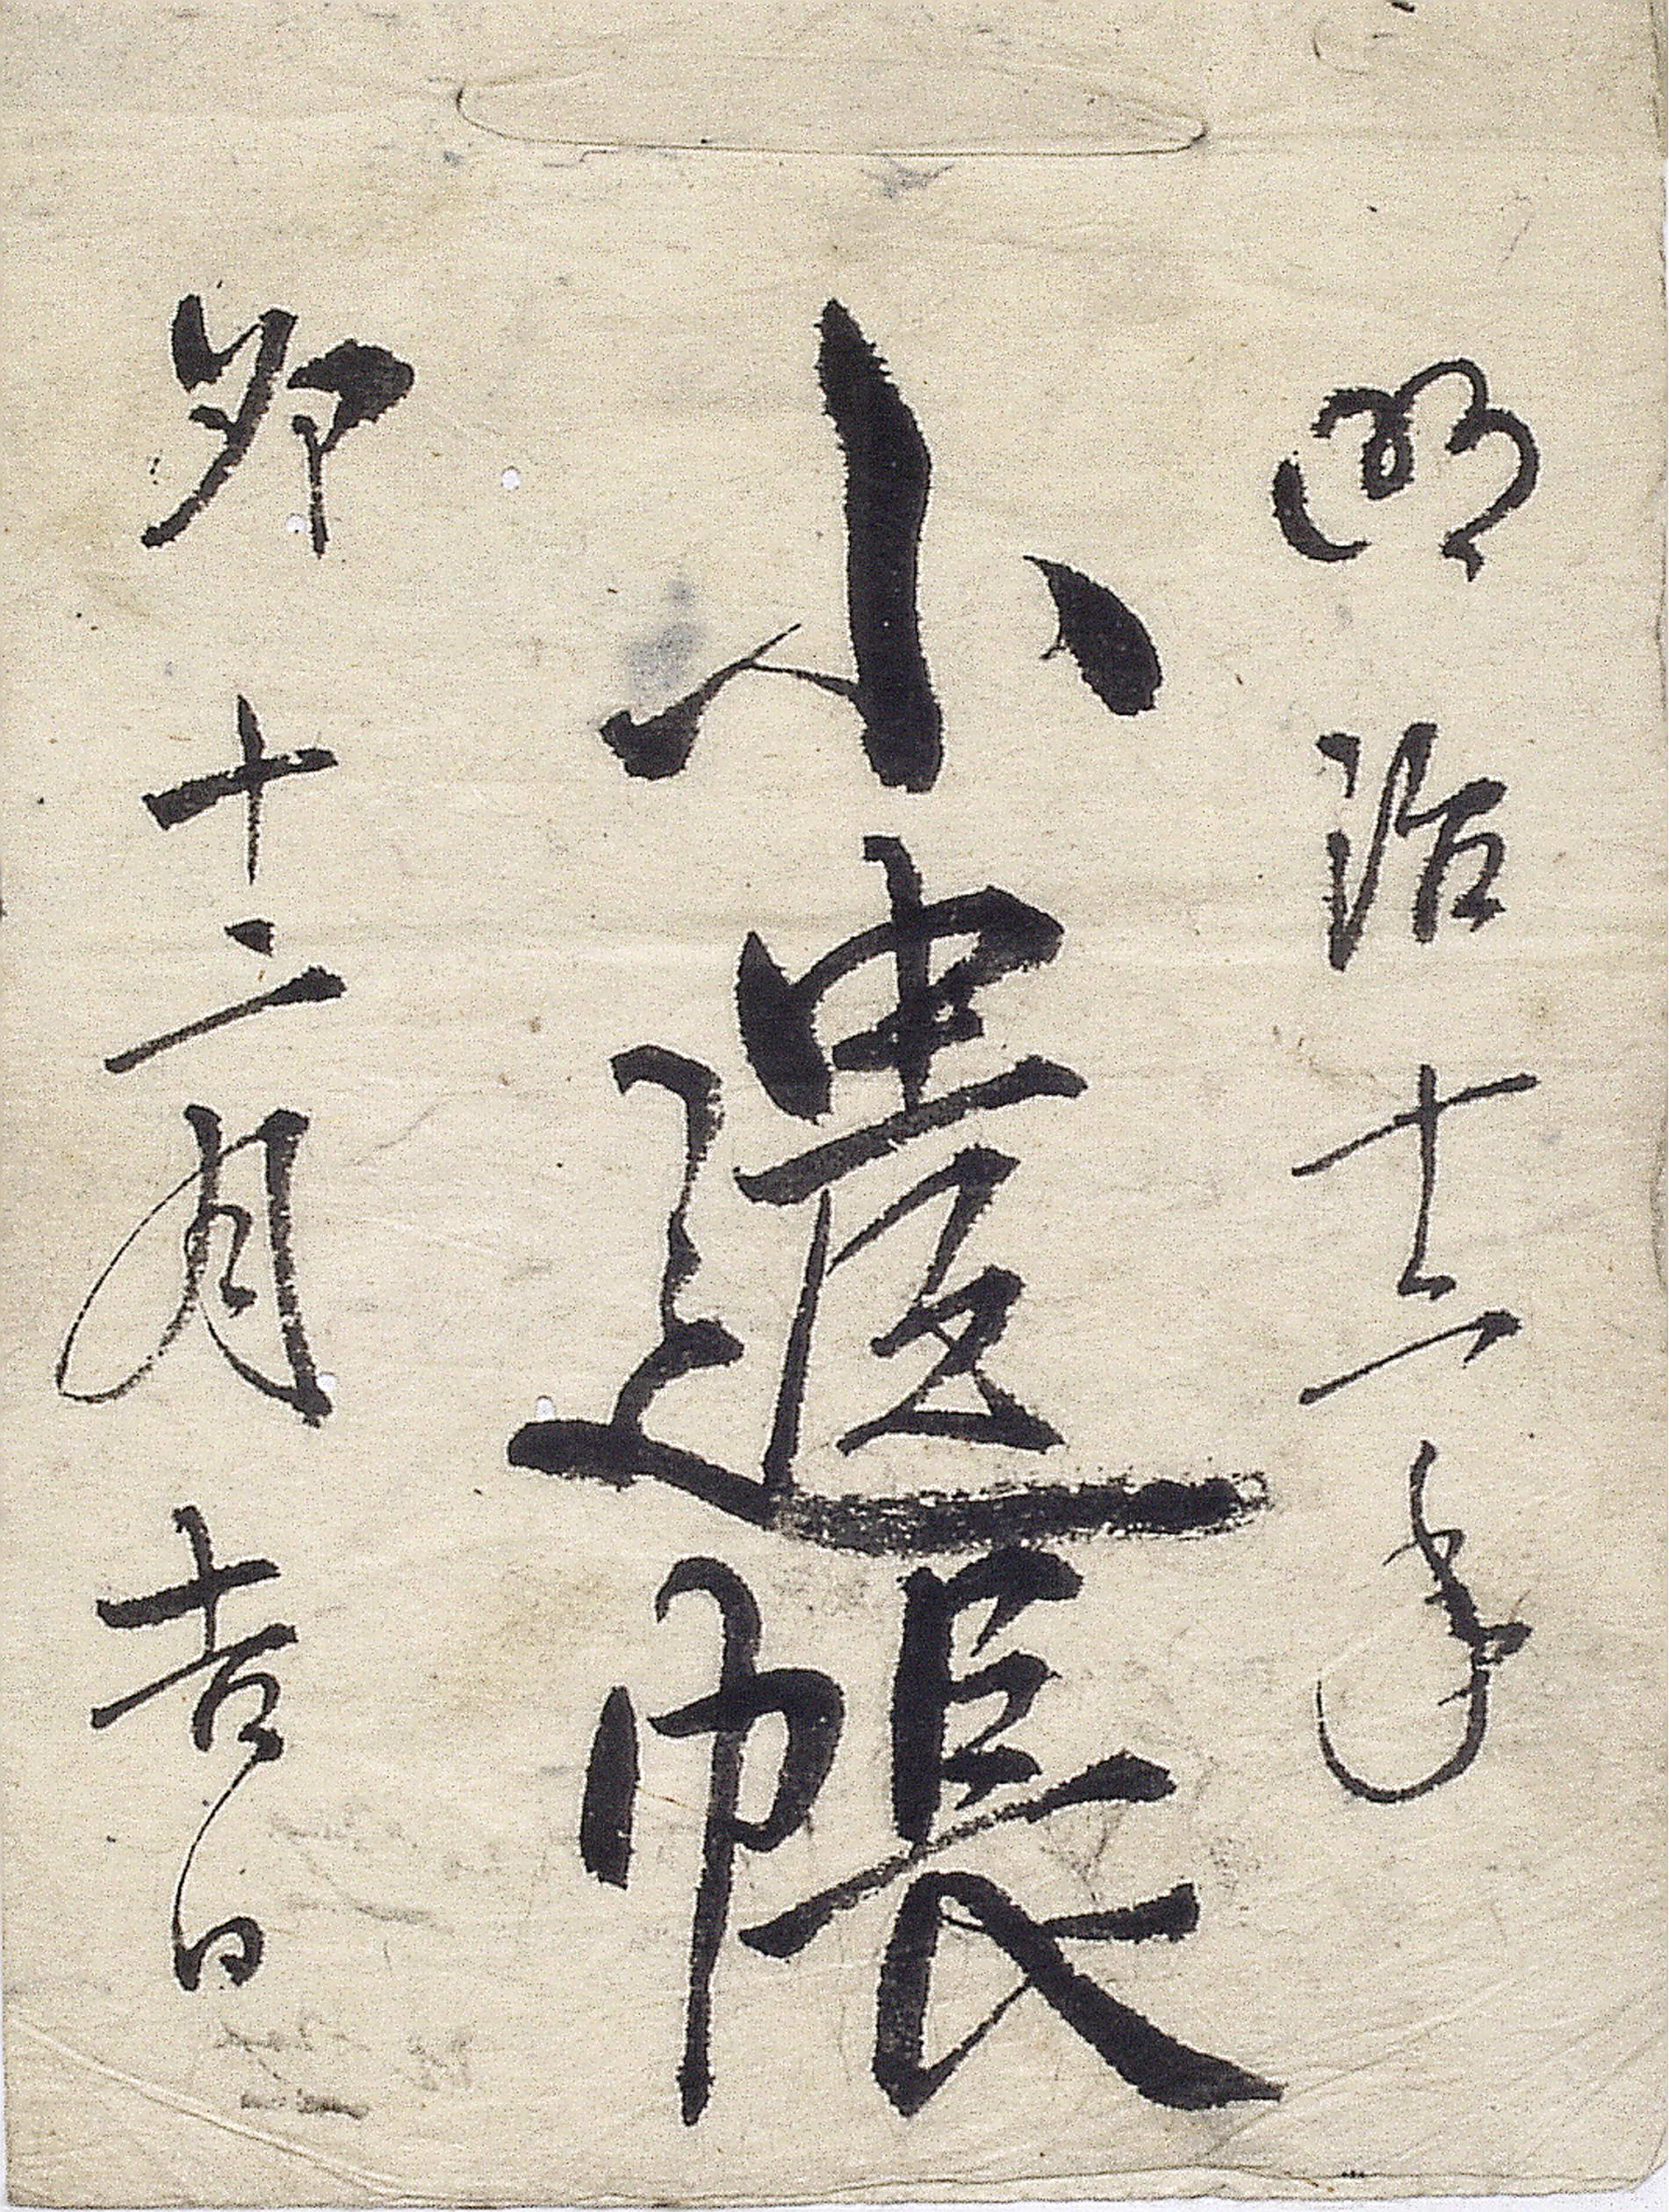 明治十二年
小遣帳
卯十二月吉日